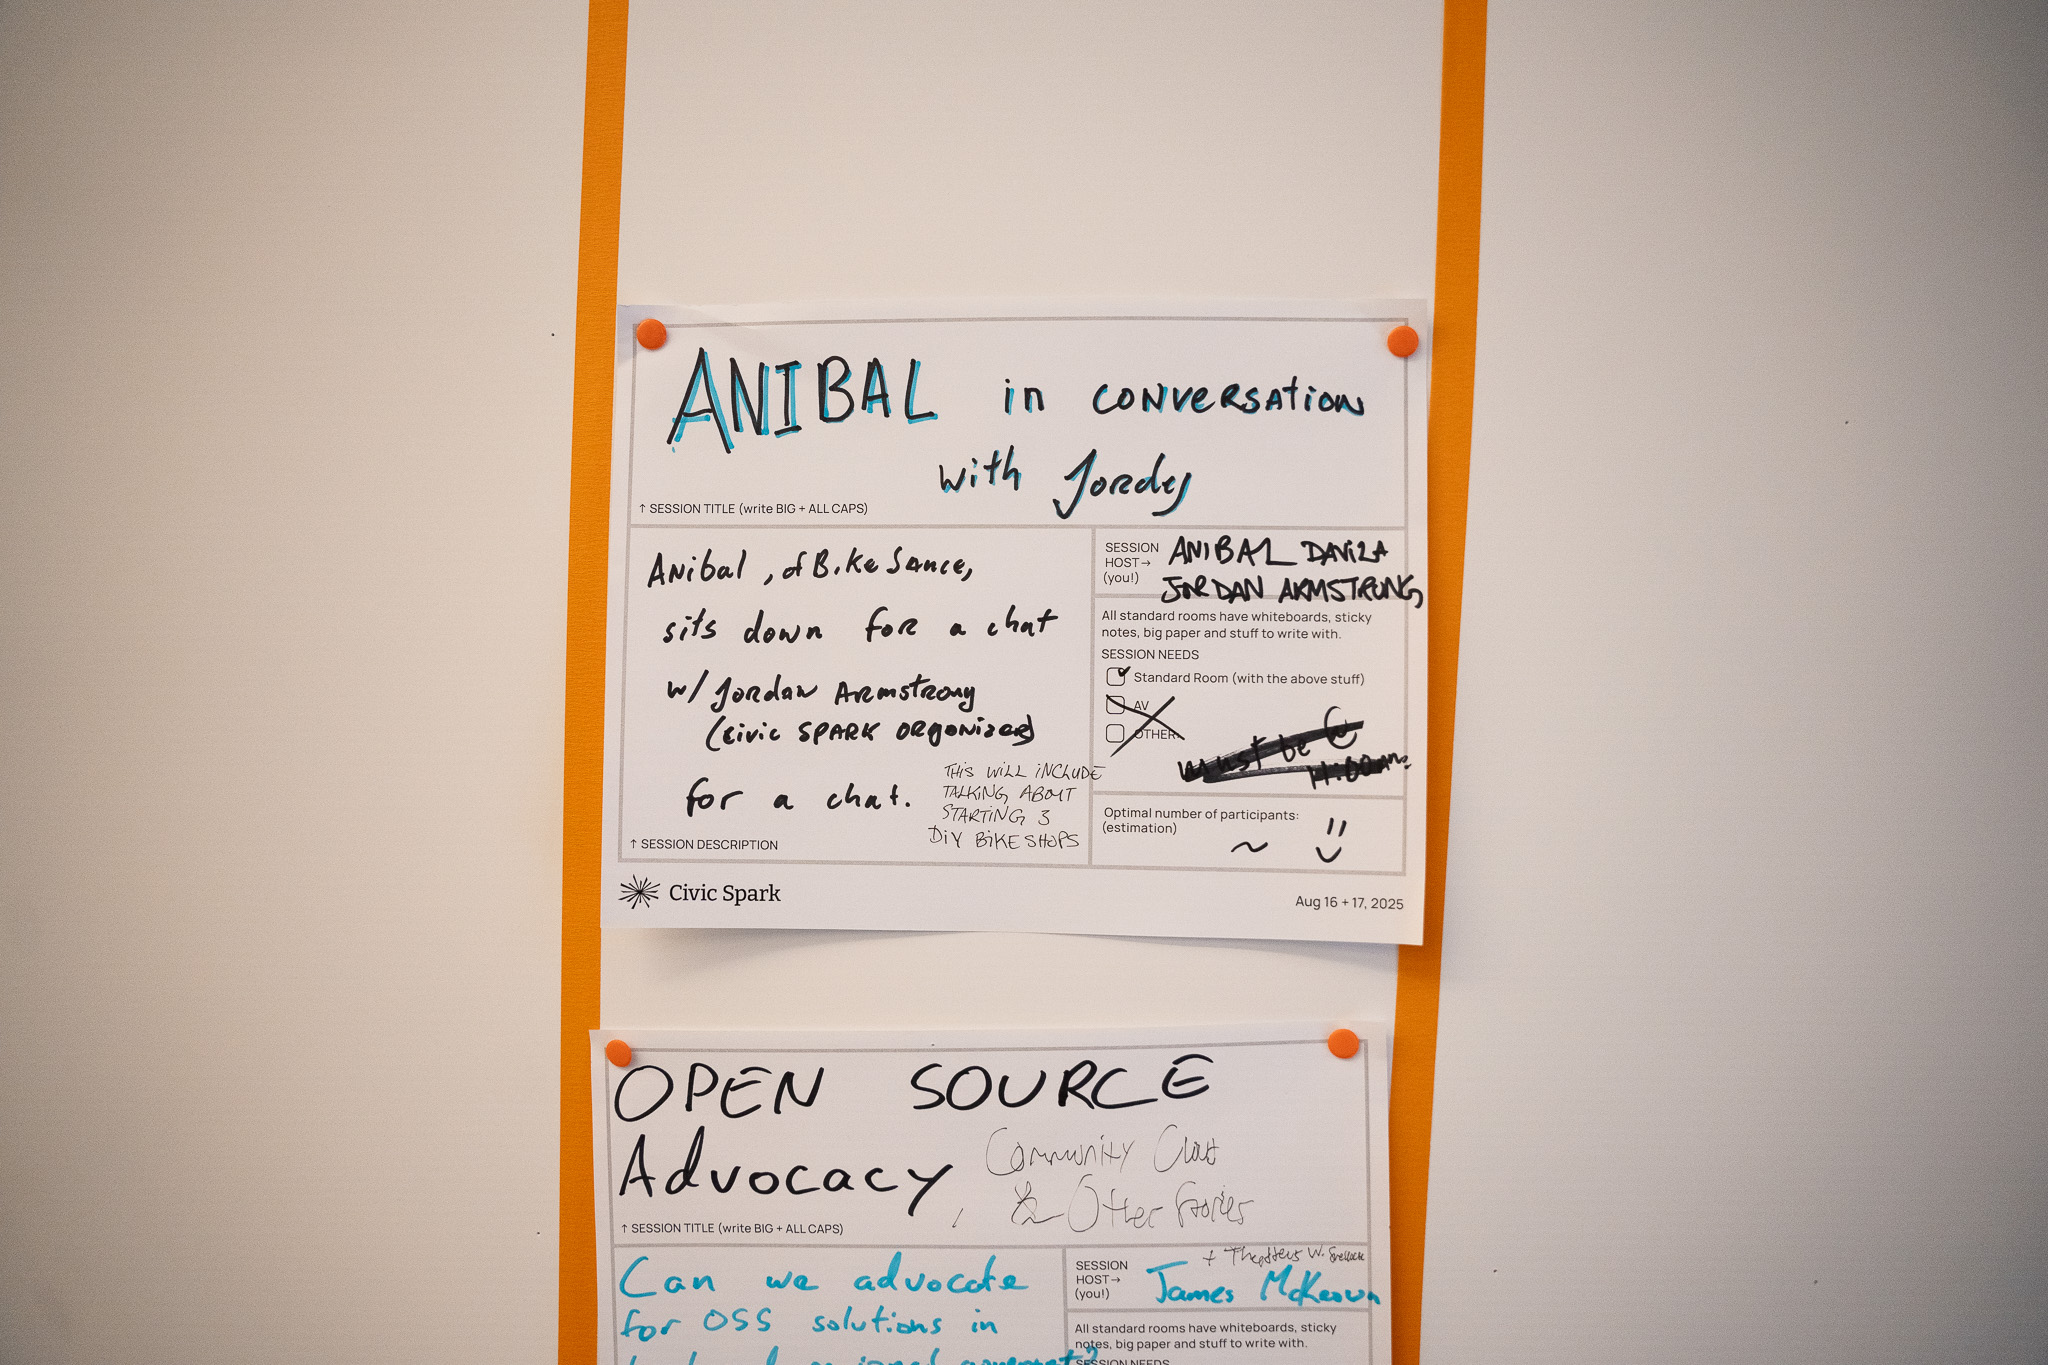 ANIBAL in conversation
with Jordy
↑ SESSION TITLE (write BIG + ALL CAPS)
Anibal, of Bike Sauce,
sits down for a chat
w/ Jordan Armstrong
(Civic SPARK ORGANIZER)
for a chat.
THIS WILL INCLUDE
TALKING ABOUT
STARTING 3
DIY BIKE SHOPS
↑ SESSION DESCRIPTION
SESSION
HOST→
(you!)
ANIBAL DAVILA
JORDAN ARMSTRONG
All standard rooms have whiteboards, sticky
notes, big paper and stuff to write with.
SESSION NEEDS
Standard Room (with the above stuff)
AV
OTHER:
must be @
11:00am.
Optimal number of participants:
(estimation)
~
Civic Spark
Aug 16 + 17, 2025
OPEN SOURCE
Advocacy,
Community Chat
& Other Stories
↑ SESSION TITLE (write BIG + ALL CAPS)
Can we advocate
for OSS solutions in
SESSION
HOST→
(you!)
+ W.
James McKeown
All standard rooms have whiteboards, sticky
notes, big paper and stuff to write with.
SESSION NEEDS